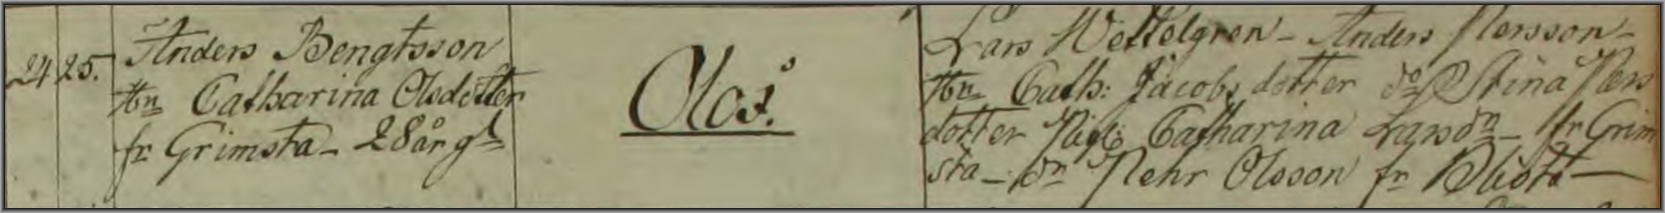 24 25. Anders Bengtsson
Hn Catharina Olsdotter
fr Grimsta - 28 år gl
Olof.
Lars Wettelgren - Anders Persson -
Hn Cath: Jacobs dotter do Stina Pers
dotter Pig: Catharina Larsdn - fr Grim
sta - dn Pehr Olsson fr